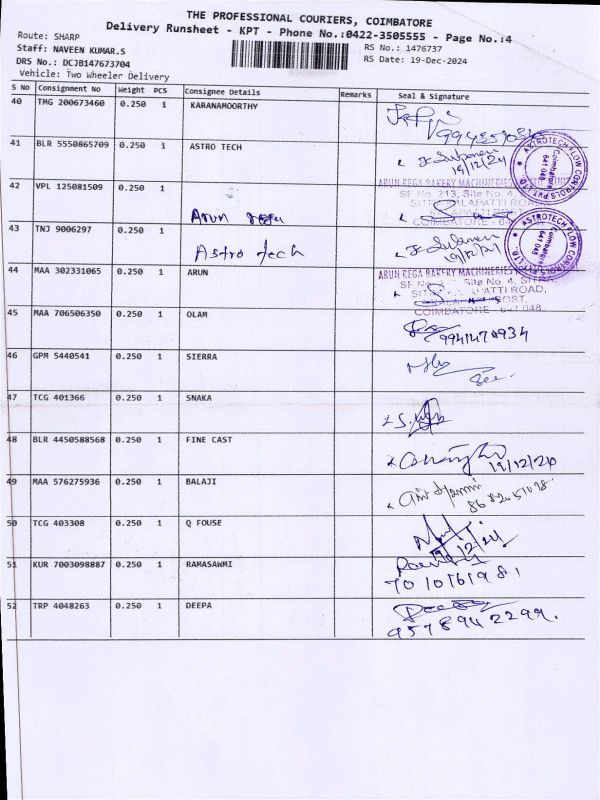 THE PROFESSIONAL COURIERS, COIMBATORE
Delivery Runsheet - KPT - Phone No.:0422-3505555 - Page No.:4
Route: SHARP
RS No.: 1476737
Staff: NAVEEN KUMAR.S
RS Date: 19-Dec-2024
DRS No.: DCJB147673704
Vehicle: Two Wheeler Delivery
S No Consignment No Weight PCS Consignee Details Remarks Seal & Signature
40 TMG 200673460 0.250 1 KARANAMOORTHY
41 BLR 5550865709 0.250 1 ASTRO TECH
19/12/24
ASTROTECH FLOW CONTROLS PVT LTD
Coimbatore
641 048
42 VPL 125081509 0.250 1
Arun
ARUN REGA BAKERY MACHINERIES
SF No. 213, Site No. 4,
43 TNJ 9006297 0.250 1
Astro tech
19/12/24
ASTROTECH FLOW CONTROLS PVT LTD
Coimbatore
641 048
44 MAA 302331065 0.250 1 ARUN
ARUN REGA BAKERY MACHINERIES
Site No. 4, SITRA,
COIMBATORE - 641 048.
45 MAA 706506350 0.250 1 OLAM
9941470934
46 GPM 5440541 0.250 1 SIERRA
47 TCG 401366 0.250 1 SNAKA
48 BLR 4450588568 0.250 1 FINE CAST
19/12/24
49 MAA 576275936 0.250 1 BALAJI
50 TCG 403308 0.250 1 Q FOUSE
19/12/24
51 KUR 7003098887 0.250 1 RAMASAWMI
52 TRP 4048263 0.250 1 DEEPA
9578942299.